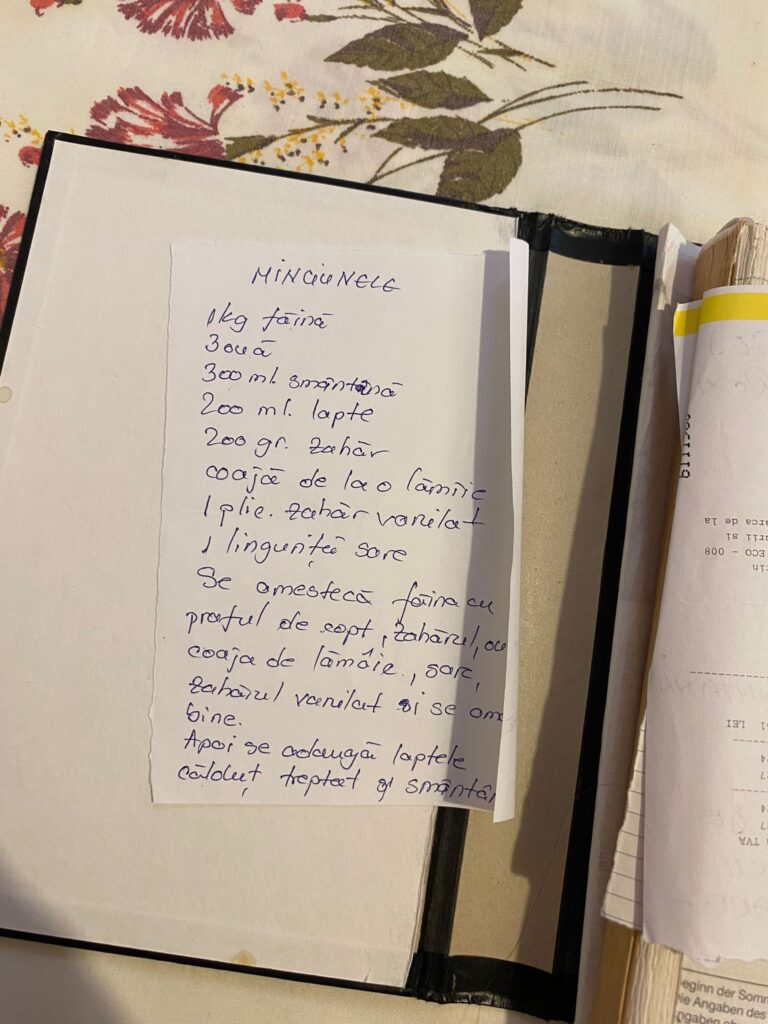 MINCIUNELE
1kg făină
3 ouă
300 ml. smântână
200 ml. lapte
200 gr. zahăr
coajă de la o lămîie
1 plic. zahăr vanilat
1 linguriță sare
Se amestecă făina cu
praful de copt, zahărul, ou
coaja de lămâie, sare,
zahărul vanilat și se ame
bine.
Apoi se adaugă laptele
călduț treptat și smântân
arca de la
urii si
ECO - 008
LEI
TVA
eginn der Somm
ie Angaben des
ngaben